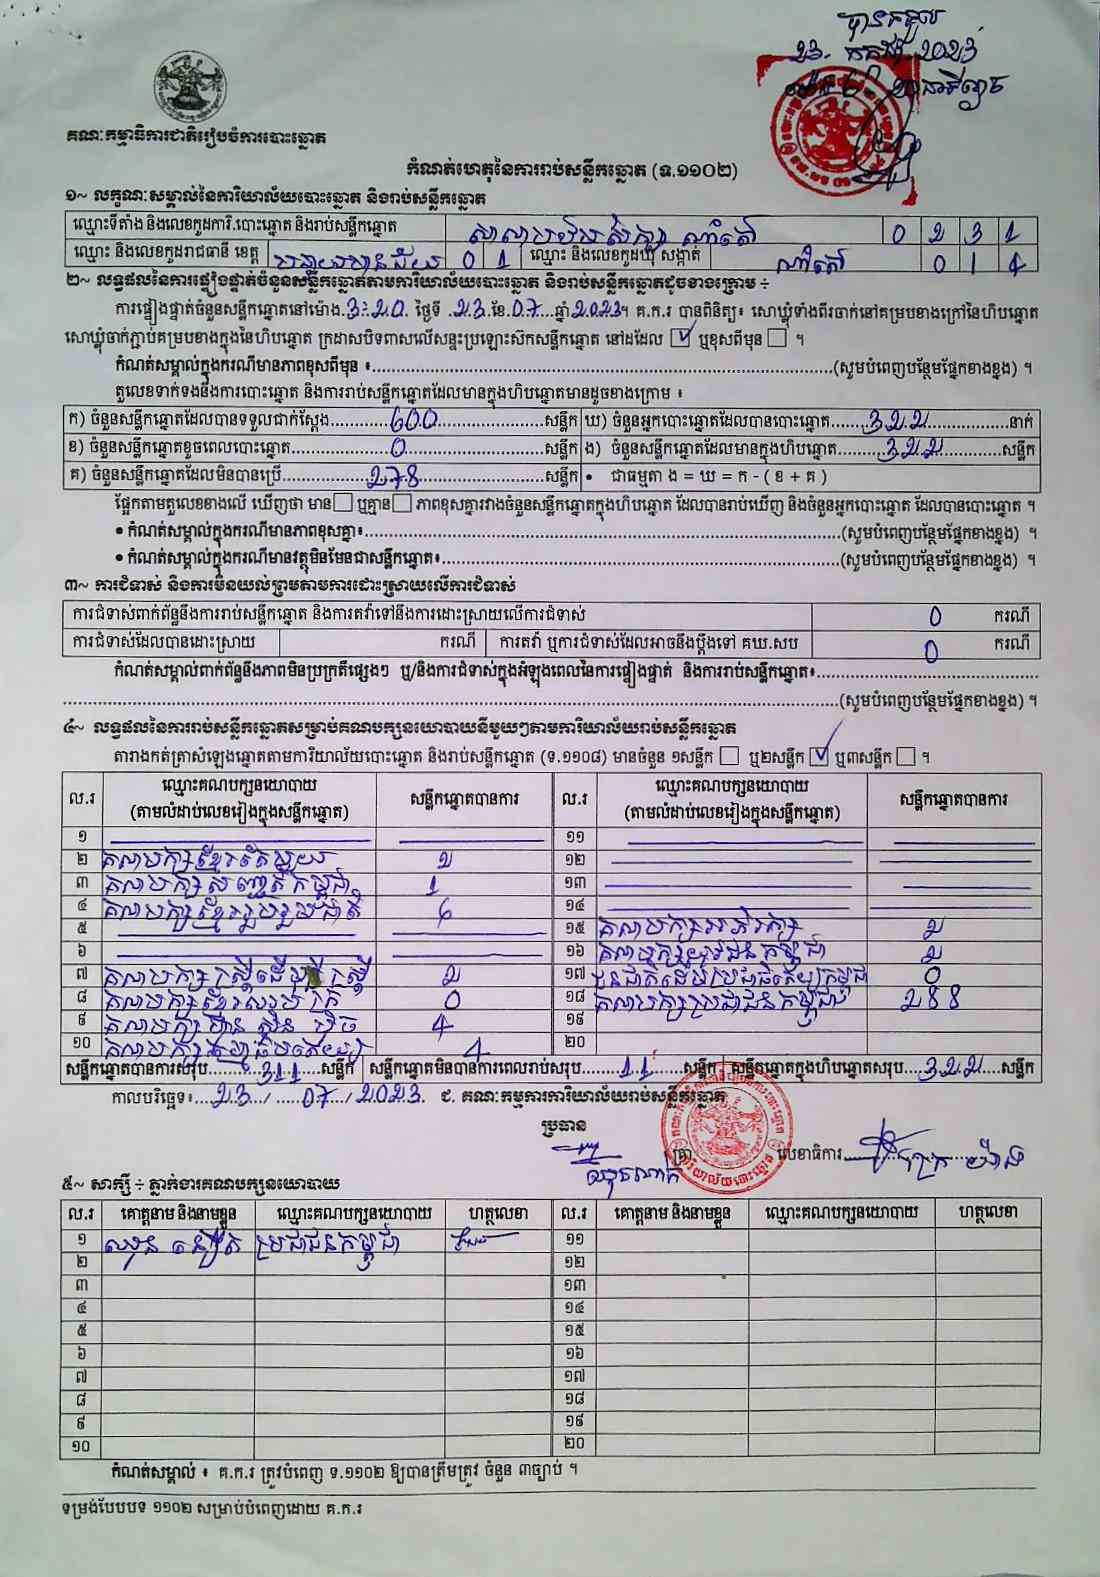 បានទទួល
23. កក្កដា 2023
គណៈកម្មាធិការជាតិរៀបចំការបោះឆ្នោត
កំណត់ហេតុនៃការរាប់សន្លឹកឆ្នោត (ទ.១១០២)
១~ លក្ខណៈសម្គាល់នៃការិយាល័យបោះឆ្នោត និងរាប់សន្លឹកឆ្នោត
ឈ្មោះទីតាំង និងលេខកូដការិ.បោះឆ្នោត និងរាប់សន្លឹកឆ្នោត 0 2 3 1
ឈ្មោះ និងលេខកូដរាជធានី ខេត្ត បន្ទាយមានជ័យ 0 1 ឈ្មោះ និងលេខកូដឃុំ សង្កាត់ 0 1 4
២~ លទ្ធផលនៃការផ្ទៀងផ្ទាត់ចំនួនសន្លឹកឆ្នោតតាមការិយាល័យបោះឆ្នោត និងរាប់សន្លឹកឆ្នោតដូចខាងក្រោម ÷
ការផ្ទៀងផ្ទាត់ចំនួនសន្លឹកឆ្នោតនៅម៉ោង.3:20. ថ្ងៃទី .23.ខែ.07...ឆ្នាំ.2023។ គ.ក.រ បានពិនិត្យ៖ សោឃ្លុំទាំងពីរចាក់នៅគម្របខាងក្រៅនៃហិបឆ្នោត
សោឃ្លុំចាក់ភ្ជាប់គម្របខាងក្នុងនៃហិបឆ្នោត ក្រដាសបិទពាសលើសន្ទះប្រឡោះស៊កសន្លឹកឆ្នោត នៅដដែល ☑ ឬខុសពីមុន ☐ ។
កំណត់សម្គាល់ក្នុងករណីមានភាពខុសពីមុន ៖...(សូមបំពេញបន្ថែមផ្នែកខាងខ្នង) ។
តួលេខទាក់ទងនឹងការបោះឆ្នោត និងការរាប់សន្លឹកឆ្នោតដែលមានក្នុងហិបឆ្នោតមានដូចខាងក្រោម ៖
ក) ចំនួនសន្លឹកឆ្នោតដែលបានទទួលជាក់ស្តែង...600...សន្លឹក ឃ) ចំនួនអ្នកបោះឆ្នោតដែលបានបោះឆ្នោត...322...នាក់
ខ) ចំនួនសន្លឹកឆ្នោតខូចពេលបោះឆ្នោត...0...សន្លឹក ង) ចំនួនសន្លឹកឆ្នោតដែលមានក្នុងហិបឆ្នោត...322...សន្លឹក
គ) ចំនួនសន្លឹកឆ្នោតដែលមិនបានប្រើ...278...សន្លឹក • ជាធម្មតា ង = ឃ = ក - ( ខ + គ )
ផ្អែកតាមតួលេខខាងលើ ឃើញថា មាន☐ ឬគ្មាន☐ ភាពខុសគ្នារវាងចំនួនសន្លឹកឆ្នោតក្នុងហិបឆ្នោត ដែលបានរាប់ឃើញ និងចំនួនអ្នកបោះឆ្នោត ដែលបានបោះឆ្នោត ។
• កំណត់សម្គាល់ក្នុងករណីមានភាពខុសគ្នា៖...(សូមបំពេញបន្ថែមផ្នែកខាងខ្នង) ។
• កំណត់សម្គាល់ក្នុងករណីមានវត្ថុមិនមែនជាសន្លឹកឆ្នោត៖...(សូមបំពេញបន្ថែមផ្នែកខាងខ្នង) ។
៣~ ការជំទាស់ និងការមិនយល់ព្រមតាមការដោះស្រាយលើការជំទាស់
ការជំទាស់ពាក់ព័ន្ធនឹងការរាប់សន្លឹកឆ្នោត និងការតវ៉ាទៅនឹងការដោះស្រាយលើការជំទាស់ 0 ករណី
ការជំទាស់ដែលបានដោះស្រាយ ករណី ការតវ៉ា ឬការជំទាស់ដែលអាចនឹងប្តឹងទៅ គឃ.សប 0 ករណី
កំណត់សម្គាល់ពាក់ព័ន្ធនឹងភាពមិនប្រក្រតីផ្សេងៗ ឬ/និងការជំទាស់ក្នុងអំឡុងពេលនៃការផ្ទៀងផ្ទាត់ និងការរាប់សន្លឹកឆ្នោត៖...
...(សូមបំពេញបន្ថែមផ្នែកខាងខ្នង) ។
៤~ លទ្ធផលនៃការរាប់សន្លឹកឆ្នោតសម្រាប់គណបក្សនយោបាយនីមួយៗតាមការិយាល័យរាប់សន្លឹកឆ្នោត
តារាងកត់ត្រាសំឡេងឆ្នោតតាមការិយាល័យបោះឆ្នោត និងរាប់សន្លឹកឆ្នោត (ទ.១១០៨) មានចំនួន ១សន្លឹក ☐ ឬ២សន្លឹក ☑ ឬ៣សន្លឹក ☐ ។
ល.រ ឈ្មោះគណបក្សនយោបាយ (តាមលំដាប់លេខរៀងក្នុងសន្លឹកឆ្នោត) សន្លឹកឆ្នោតបានការ ល.រ ឈ្មោះគណបក្សនយោបាយ (តាមលំដាប់លេខរៀងក្នុងសន្លឹកឆ្នោត) សន្លឹកឆ្នោតបានការ
១ ១១
២ គណបក្សខ្មែរតែមួយ 2 ១២
៣ គណបក្សសញ្ជាតិកម្ពុជា 1 ១៣
៤ គណបក្សខ្មែររួបរួមជាតិ 6 ១៤
៥ ១៥ 2
៦ ១៦ គណបក្សយុវជនកម្ពុជា 2
៧ គណបក្សស្ត្រីដើម្បីស្ត្រី 2 ១៧ ជនជាតិដើមប្រជាធិបតេយ្យកម្ពុជា 0
៨ 0 ១៨ គណបក្សប្រជាជនកម្ពុជា 288
៩ 4 ១៩
១០ 4 ២០
សន្លឹកឆ្នោតបានការសរុប...311...សន្លឹក សន្លឹកឆ្នោតមិនបានការពេលរាប់សរុប...11...សន្លឹក សន្លឹកឆ្នោតក្នុងហិបឆ្នោតសរុប...322...សន្លឹក
កាលបរិច្ឆេទ៖...23.../...07.../2023. ជ. គណៈកម្មការការិយាល័យរាប់សន្លឹកឆ្នោត
ប្រធាន
ត្រា
លេខាធិការ
៥~ សាក្សី ÷ ភ្នាក់ងារគណបក្សនយោបាយ
ល.រ គោត្តនាម និងនាមខ្លួន ឈ្មោះគណបក្សនយោបាយ ហត្ថលេខា ល.រ គោត្តនាម និងនាមខ្លួន ឈ្មោះគណបក្សនយោបាយ ហត្ថលេខា
១ ប្រជាជនកម្ពុជា ១១
២ ១២
៣ ១៣
៤ ១៤
៥ ១៥
៦ ១៦
៧ ១៧
៨ ១៨
៩ ១៩
១០ ២០
កំណត់សម្គាល់ ៖ គ.ក.រ ត្រូវបំពេញ ទ.១១០២ ឱ្យបានត្រឹមត្រូវ ចំនួន ៣ច្បាប់ ។
ទម្រង់បែបបទ ១១០២ សម្រាប់បំពេញដោយ គ.ក.រ